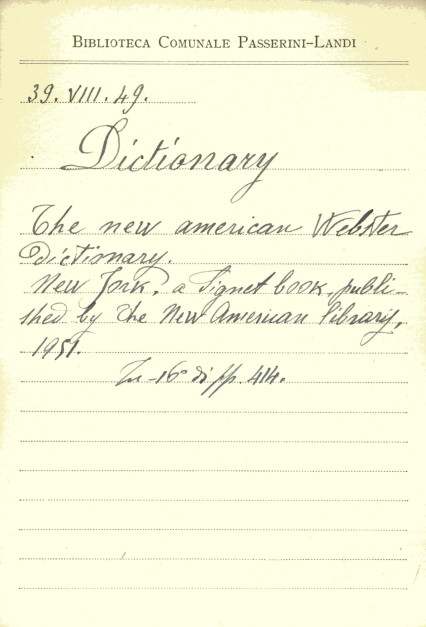 BIBLIOTECA COMUNALE PASSERINI-LANDI
39. VIII. 49.
Dictionary
The new american Webster
Dictionary.
New York, a Signet book, publi-
shed by the New American library,
1951.
In-16° di pp. 414.